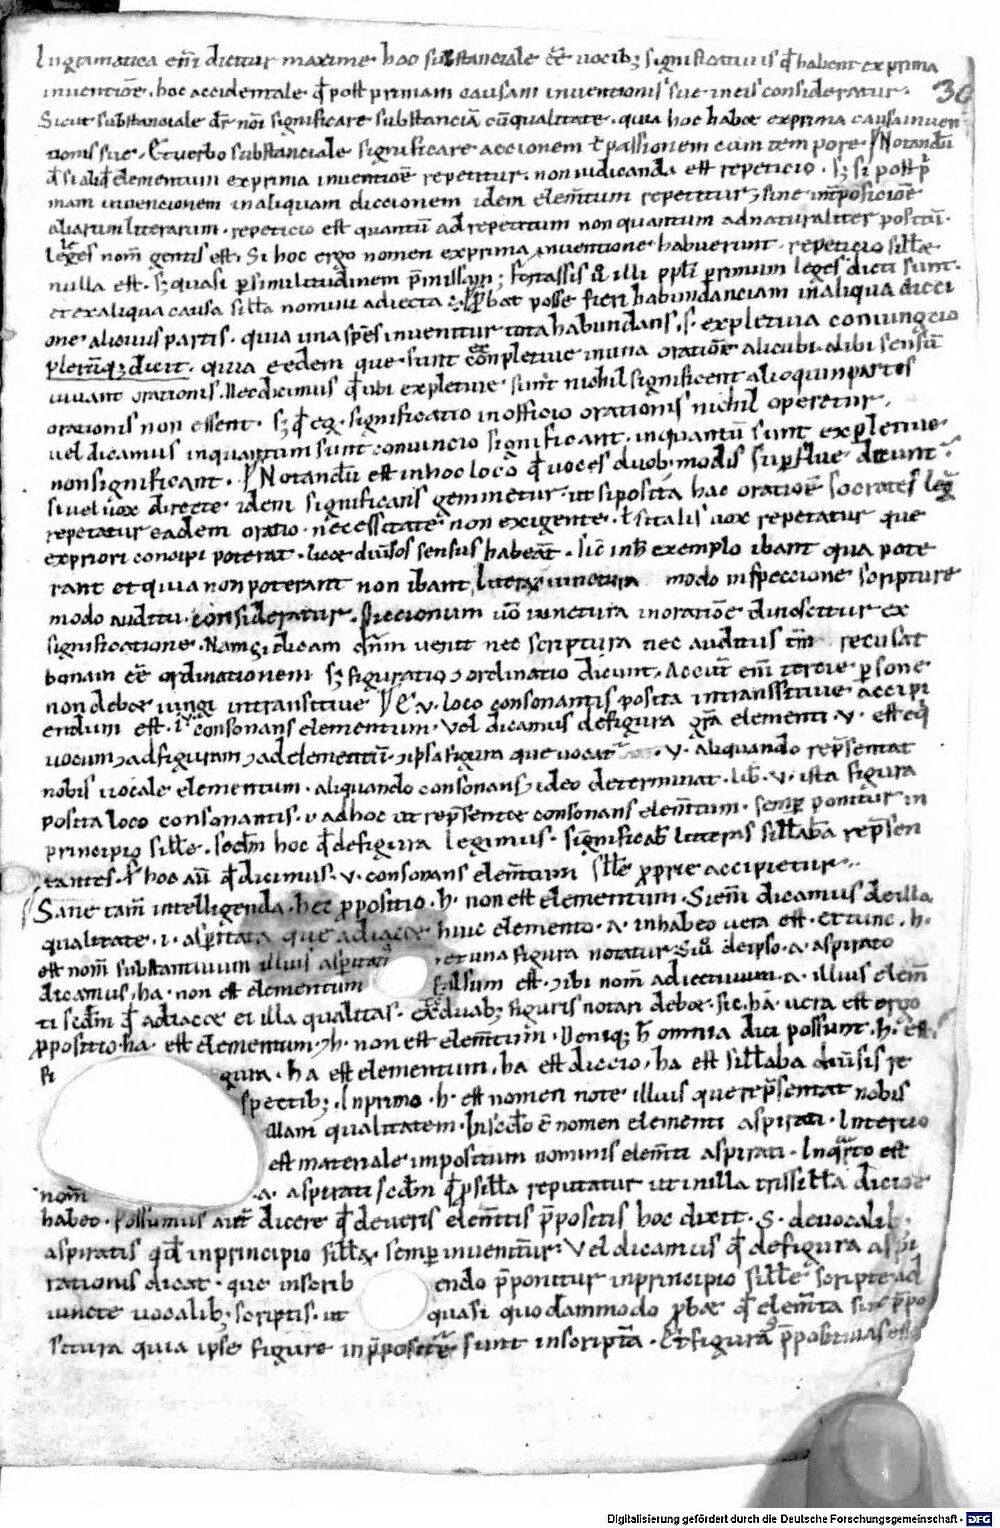 In gramatica eni̅ dicitur maxime hoc substanciale ee̅ vocib; significativis qd̅ habent ex prima
inventio̅e. hoc accidentale qd̅ post primam causam inventionis sue in eis consideratur.
30
Sicut substanciale dr̅ no̅i significare substancia̅ cu̅ qualitate. quia hoc habet ex prima causa inven
tionis sue. Et verbo substanciale significare accionem ł passionem cum tempore. Notandu̅
qd̅ si aliqd̅ elementum ex prima inventio̅e repetitur. non iudicanda est repeticio. s; si post p̅
mam invencionem in aliquam diccionem idem elem̅tum repetitur, sine inposicio̅e
aliarum literarum. repeticio est quantu̅ ad repetitum non quantum ad naturaliter positu̅.
leges nom̅ gentis est. Si hoc ergo nomen ex prima inventione habuerunt. repeticio sill̅e
nulla est. s; quasi p similitudinem p̅missam; fortassis & illi ppl̅i primum leges dicti sunt.
et ex aliqua causa sill̅a nomini adiecta e̅. Probat posse fieri habundanciam in aliqua dicci
one alicuius partis. quia una spe̅s invenitur tota habundans. s. expletiva coniungcio
plerūq; dicit. quia eedem que sunt conpletive in una oratio̅e alicubi. alibi sensu̅
iuvant orationis. Nec dicimus qd̅ ubi expletive sunt nichil significent alioquin partes
orationis non essent. s; qd̅ eq. significatio in officio orationis nichil operetur.
vel dicamus inquantum sunt coniuncio significant. inquantu̅ sunt expletive
non significant. Notandu̅ est in hoc loco qd̅ voces duob; modis superflue dicunt̅.
si vel vox directe idem significans geminetur. ut si posita hac oratio̅e socrates leg̅
repetatur eadem oratio necessitate non exigente. ł si talis vox repetatur que
ex priori concipi poterat. licet div̅sos sensus habeat̅. sic̅ in h̅ exemplo ibant qua pote
rant et quia non poterant non ibant. litterar̅ iunctura modo in speccione scripture
modo auditu consideratur. Diccionum vo̅ iunctura in oratio̅e dinoscitur ex
significatione. Nam si dicam qn̅m venit nec scriptura nec auditus tm̅ recusat
bonam ee̅ ordinationem s; figuratio & ordinatio dicunt. Accu̅t eni̅ tercie persone
non debet iungi intransitive. Et v. loco consonantis posita intranssitive accipi
endum est. i. consonans elementum. Vel dicamus de figura gr̅a elementi. v. est eq̅
vocum & ad figuram & ad elementu̅. & ipsa figura que vocat̅ v. aliquando rep̅sentat
nobis vocale elementum. aliquando consonans; ideo determinat. ub̅. v. ista figura
posita loco consonantis. v ad hoc ut rep̅sentet consonans elem̅tum. semper ponitur in
principio sill̅e. secd̅m hoc qd̅ de figura legimus. significab̅ litteras sillaba̅ rep̅sen
tantes. & hoc au̅ qd̅ dicimus. v. consonans elem̅tum sill̅e proprie accipietur.
Sane tam̅ intelligenda. hec p̅positio. h. non est elementum. Si eni̅ dicamus de illa
qualitate. i. asp̅itata que adiacet huic elemento. a. in habeo vera est. et tunc. h.
est nom̅ substantivum illius asp̅itat̅ & una figura notatur. Si v̅ de ipso. a. aspirato
dicamus, ha. non est elementum falsum est. & ibi nom̅ adiectivum. a. illius elem̅
ti secd̅m qd̅ adiacet ei illa qualitas. & duab; figuris notari debet. sic. ha̅. vera est ergo
p̅positio. ha. est elementum. & h. non est elem̅tum. Deniq; h̅ omnia dici possunt. h. est
fi gura. ha est elementum. ha est diccio. ha est sillaba div̅sis re
spectib; . In primo. h. est nomen note illius que rep̅sentat nobis
illam qualitatem. In sec̅do e̅ nomen elementi aspirati. In tercio
est materiale impositum nominis elem̅ti aspirati. In qrto est
nom̅ .a. aspirati secd̅m qd̅ p sill̅a reputatur ut in illa trissill̅a diccio̅e
habeo. Possumus aut̅ dicere qd̅ de veris elem̅tis p̅positis hoc dixit. S. de vocalib;
aspiratis qd̅ in principio sill̅ar̅. semper inveniu̅t̅. Vel dicamus qd̅ de figura aspi
rationis dicat. que inscrib endo p̅ponitur in principio sill̅e scripte ad
iuncte vocalib; scriptis. ut quasi quodammodo probet qd̅ elem̅ta sint p̅po
situra quia ipse figure in p̅positio̅e sunt inscripta. Et figura̅ p̅positivas esse
Digitalisierung gefördert durch die Deutsche Forschungsgemeinschaft - DFG